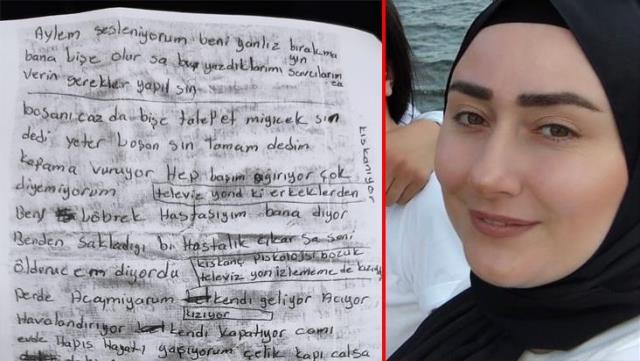 Aylem sesleniyorum beni yanlız bırakma
yın
bana bişe olur sa bu yazdıklarımı savcıların
verin gerekler yapıl sın
boşanıcaz da bişe talep et miyicek sin
dedi yeter boşan sın tamam dedim
kafama vuruyor Hep başım ağırıyor çok
kıskanıyor
diyemiyorum televiz yond ki erkeklerden
Ben Böbrek Hastasıyım bana diyor
Benden sakladığı bi Hastalık çıkar sa seni
öldürüc em diyordu kıskanç Piskolojsi bozuk
televiz yon izlememe de kızıyor
perde Açaymıyarum kendi geliyor Açıyor
kızıyor
Havalandırıyor kendi kapatıyor camı
evde Hapis Hayatı yaşıyorum çelik kapı çalsa